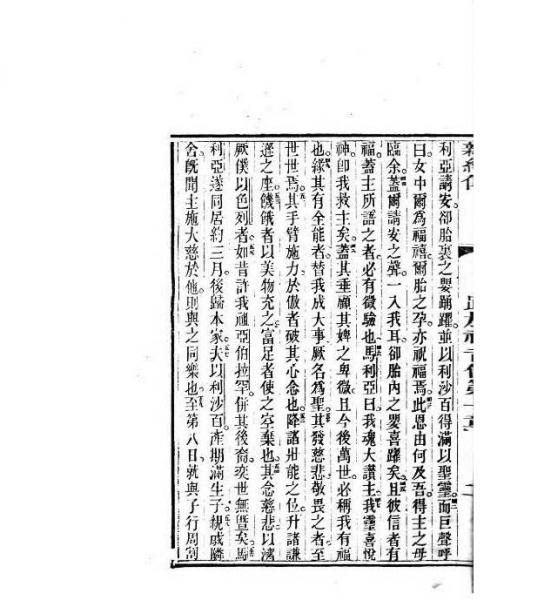 利亞請安。卻胎裏之嬰踴躍。並以利沙百得滿以聖靈。而巨聲呼
曰。女中爾爲福禧。爾胎之孕。亦祝福焉。此恩由何及吾。得主之母
臨余。蓋爾請安之聲。一入我耳。卻胎內之嬰喜躍矣。且彼信者有
福。蓋主所語之者。必有徵驗也。馬利亞曰。我魂大讚主。我靈喜悅
神卽我救主矣。蓋其垂顧其婢之卑微。且今後萬世必稱我有福
也。緣其有全能者。替我成大事。厥名爲聖。其發慈悲敬畏之者至
世世焉。其手臂施力於傲者。破其心念也。降諸能之位。升諸謙
遜之座。饑餓者以美物充之。富足者使之空棄也。其念慈悲以濟
厥僕以色列者。如昔許我祖亞伯拉罕。併其後裔。奕世無曁矣。馬
利亞遂同居。約三月後歸本家。夫以利沙百產期滿生子。親戚隣
舍旣聞主施大慈於他。則與之同樂也。至第八日。就與子行周割